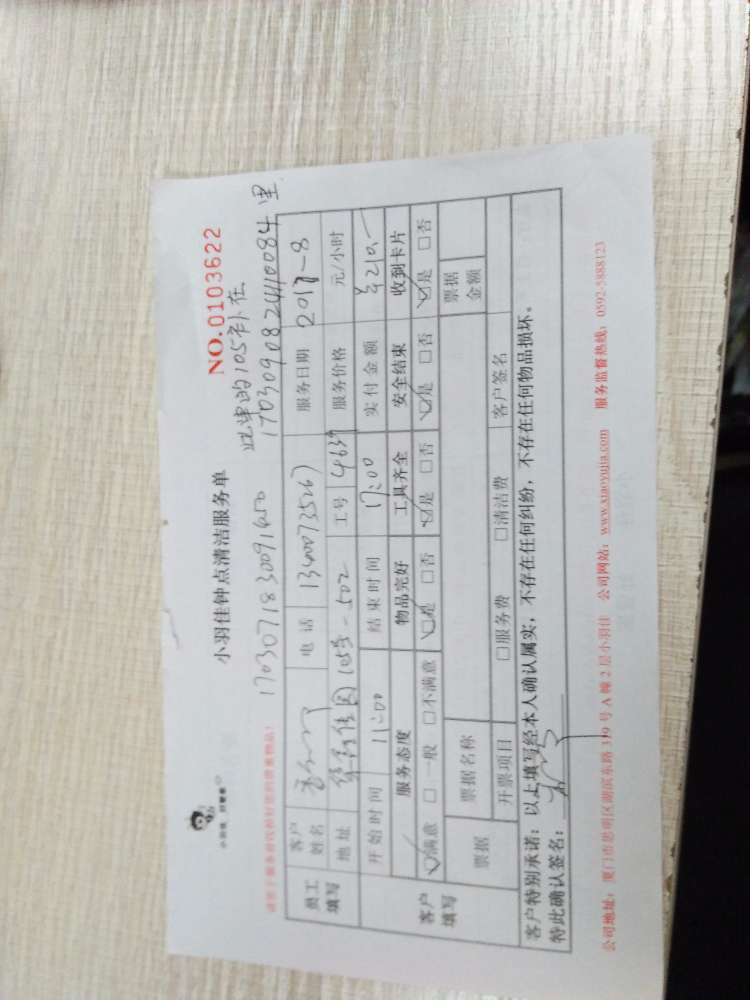 小羽佳钟点清洁服务单
NO.0103622
小羽佳，好管家
请您于服务前收拾好您的贵重物品！
1703071830091650
此单的105补在
17030908241110084里
员工填写
客户姓名
电话 13400735267
服务日期 2017-8
地址 105号-502
工号 4639
服务价格 元/小时
开始时间 11:00
结束时间 17:00
实付金额 ¥210.-
客户填写
服务态度 物品完好 工具齐全 安全结束 收到卡片
☑满意 □一般 □不满意 ☑是 □否 ☑是 □否 ☑是 □否 ☑是 □否
票据 票据名称 票据金额
开票项目 □服务费 □清洁费 客户签名
客户特别承诺：以上填写经本人确认属实，不存在任何纠纷，不存在任何物品损坏。
特此确认签名：
公司地址：厦门市思明区湖滨东路319号A幢2层小羽佳 公司网站：www.xiaoyujia.com 服务监督热线：0592-5888123